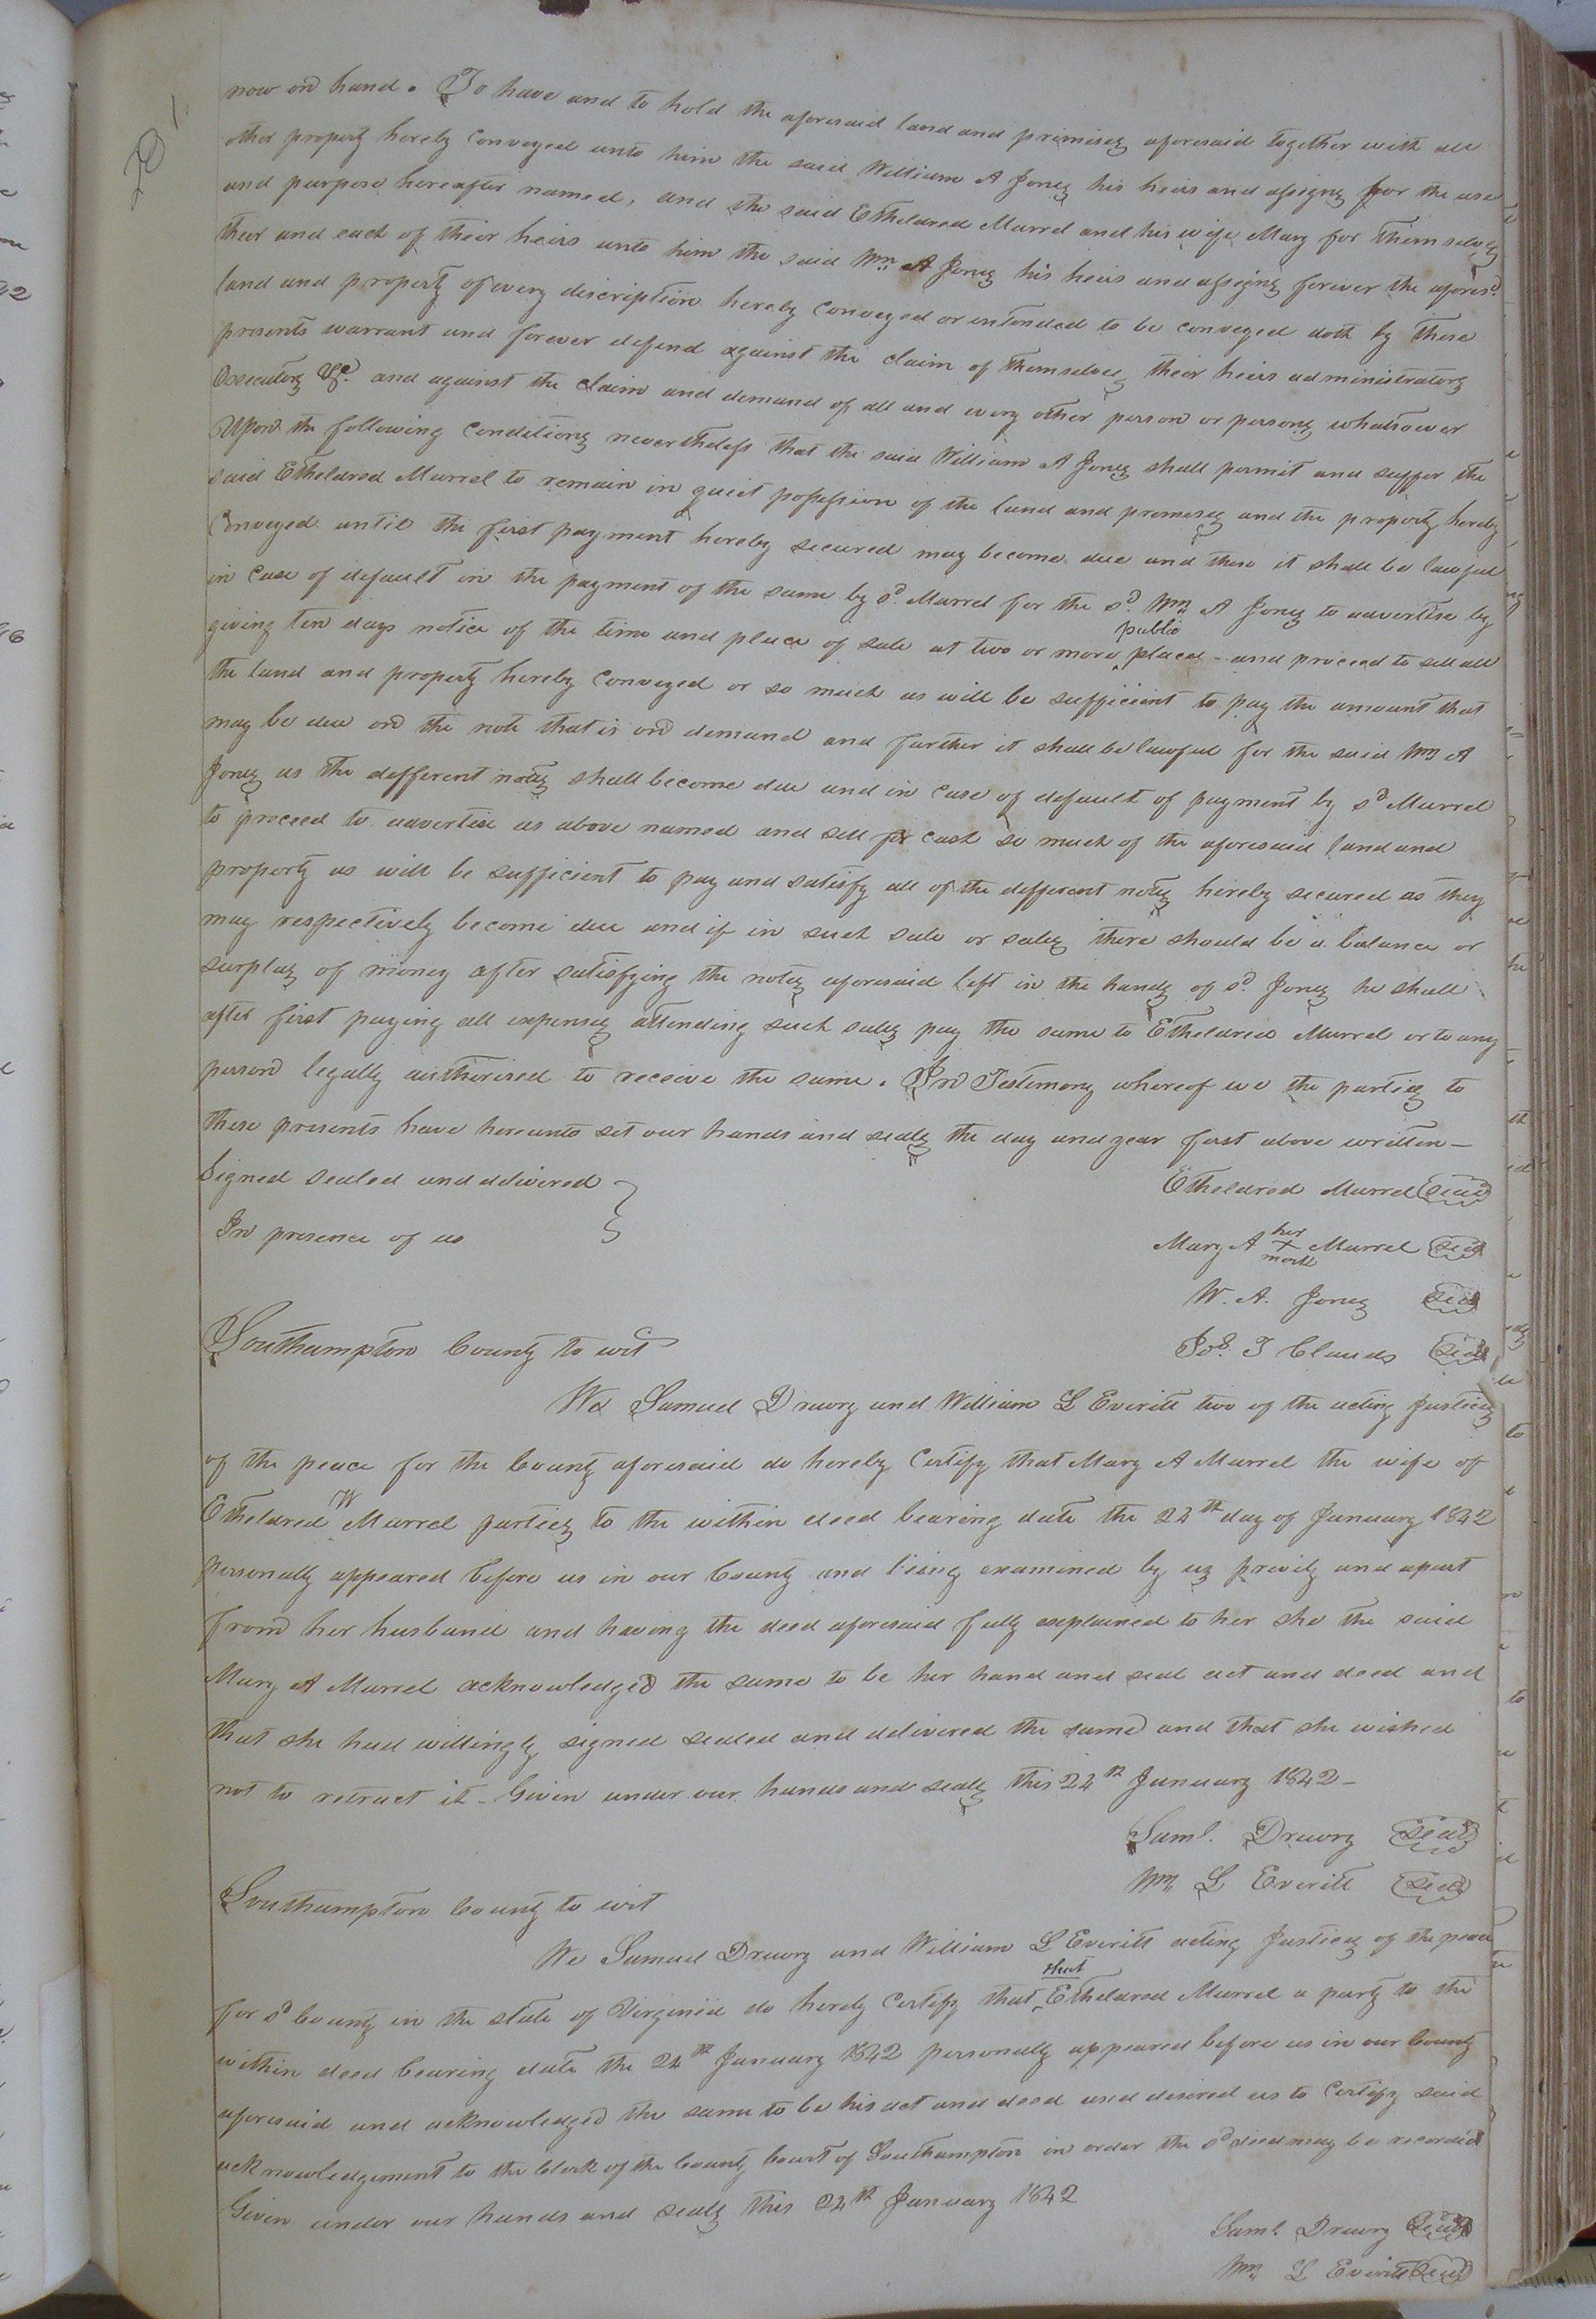 201.
now on hand. To have and to hold the aforesaid land and premises aforesaid together with all
other property hereby conveyed unto him the said William A Jones his heirs and assigns for the use
and purpose hereafter named, and the said Etheldred Murrel and his wife Mary for themselves
their and each of their heirs unto him the said Wm A Jones his heirs and assigns forever the aforesd.
land and property of every discription hereby conveyed or intended to be conveyed doth by these
presents warrant and forever defend against the claim of themselves their heirs administrators
Executors &c. and against the claim and demand of all and every other person or persons whatsoever
Upon the following conditions nevertheless that the said William A Jones shall permit and suffer the
said Etheldred Murrel to remain in quiet possession of the land and premises and the property hereby
Conveyed until the first payment hereby secured may become due and then it shall be lawful
in case of default in the payment of the same by sd. Murrel for the sd. Wm A Jones to advertise by
giving ten days notice of the time and place of sale at two or more public places - and proceed to sell all
the land and property hereby conveyed or so much as will be sufficient to pay the amount that
may be due on the note that is on demand and further it shall be lawful for the said Wm A
Jones as the different notes shall become due and in case of default of payment by sd Murrel
to proceed to advertise as above named and sell for cash so much of the aforesaid land and
property as will be sufficient to pay and satisfy all of the different notes hereby secured as they
may respectively become due and if in such sale or sales there should be a balance or
surplus of money after satisfying the notes aforesaid left in the hands of sd. Jones he shall
after first paying all expenses attending such sales pay the same to Etheldred Murrel or to any
person legally authorised to receive the same. In Testimony whereof we the parties to
these presents have hereunto set our hands and seals the day and year first above written -
Signed sealed and delivered
Etheldred Murrel Seal
In presence of us
Mary A her X mark Murrel Seal
W. A. Jones Seal
Southampton County to wit
Jos. T Clauds Seal
We Samuel Drewry and William L Everitt two of the acting Justices
of the peace for the County aforesaid do hereby Certify that Mary A Murrel the wife of
Etheldred W Murrel parties to the within deed bearing date the 24th day of January 1842
personally appeared before us in our County and being examined by us privily and apart
from her husband and having the deed aforesaid fully explained to her she the said
Mary A Murrel acknowledged the same to be her hand and seal act and deed and
that she had willingly signed sealed and delivered the same and that she wished
not to retract it - Given under our hands and seals this 24th January 1842 -
Saml. Drewry Seal
Wm L Everitt Seal
Southampton County to wit
We Samuel Drewry and William L Everitt acting Justices of the peace
for sd County in the state of Virginia do hereby Certify that that Etheldred Murrel a party to the
within deed bearing date the 24th January 1842 personally appeared before us in our County
aforesaid and acknowledged the same to be his act and deed and desired us to Certify said
acknowledgement to the Clerk of the County Court of Southampton in order the sd deed may be recorded
Given under our hands and seals this 24th January 1842
Saml. Drewry Seal
Wm L Everitt Seal